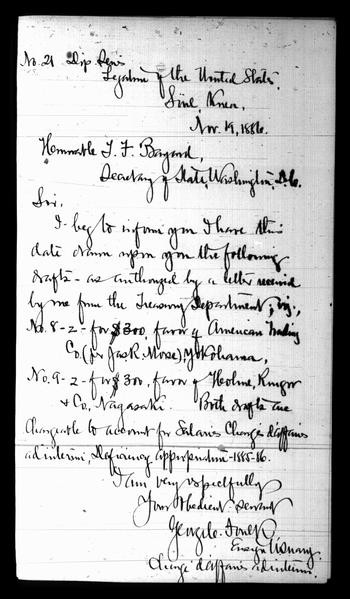 No. 21 Dip. Series
Legation of the United States,
Söul, Korea,
Nov. 19, 1886.
Honorable T. F. Bayard,
Secretary of State, Washington, D.C.
Sir,
I beg to inform you I have this
date drawn upon you the following
drafts - as authorized by a letter received
by me from the Treasury Department, viz.,
No. 8-2- for $300, favor of American Trading
Co. (for Jas. R. Morse), Yokohama,
No. 9-2- for $300, favor of Holme, Ringer
& Co, Nagasaki. Both drafts are
Chargeable to account for Salaries Charges d'affaires
ad interim, Deficiency appropriation - 1885-86.
I am very respectfully
Your obedient servant
George C. Foulk
Ensign U.S. Navy.
Chargé d'affaires ad interim.